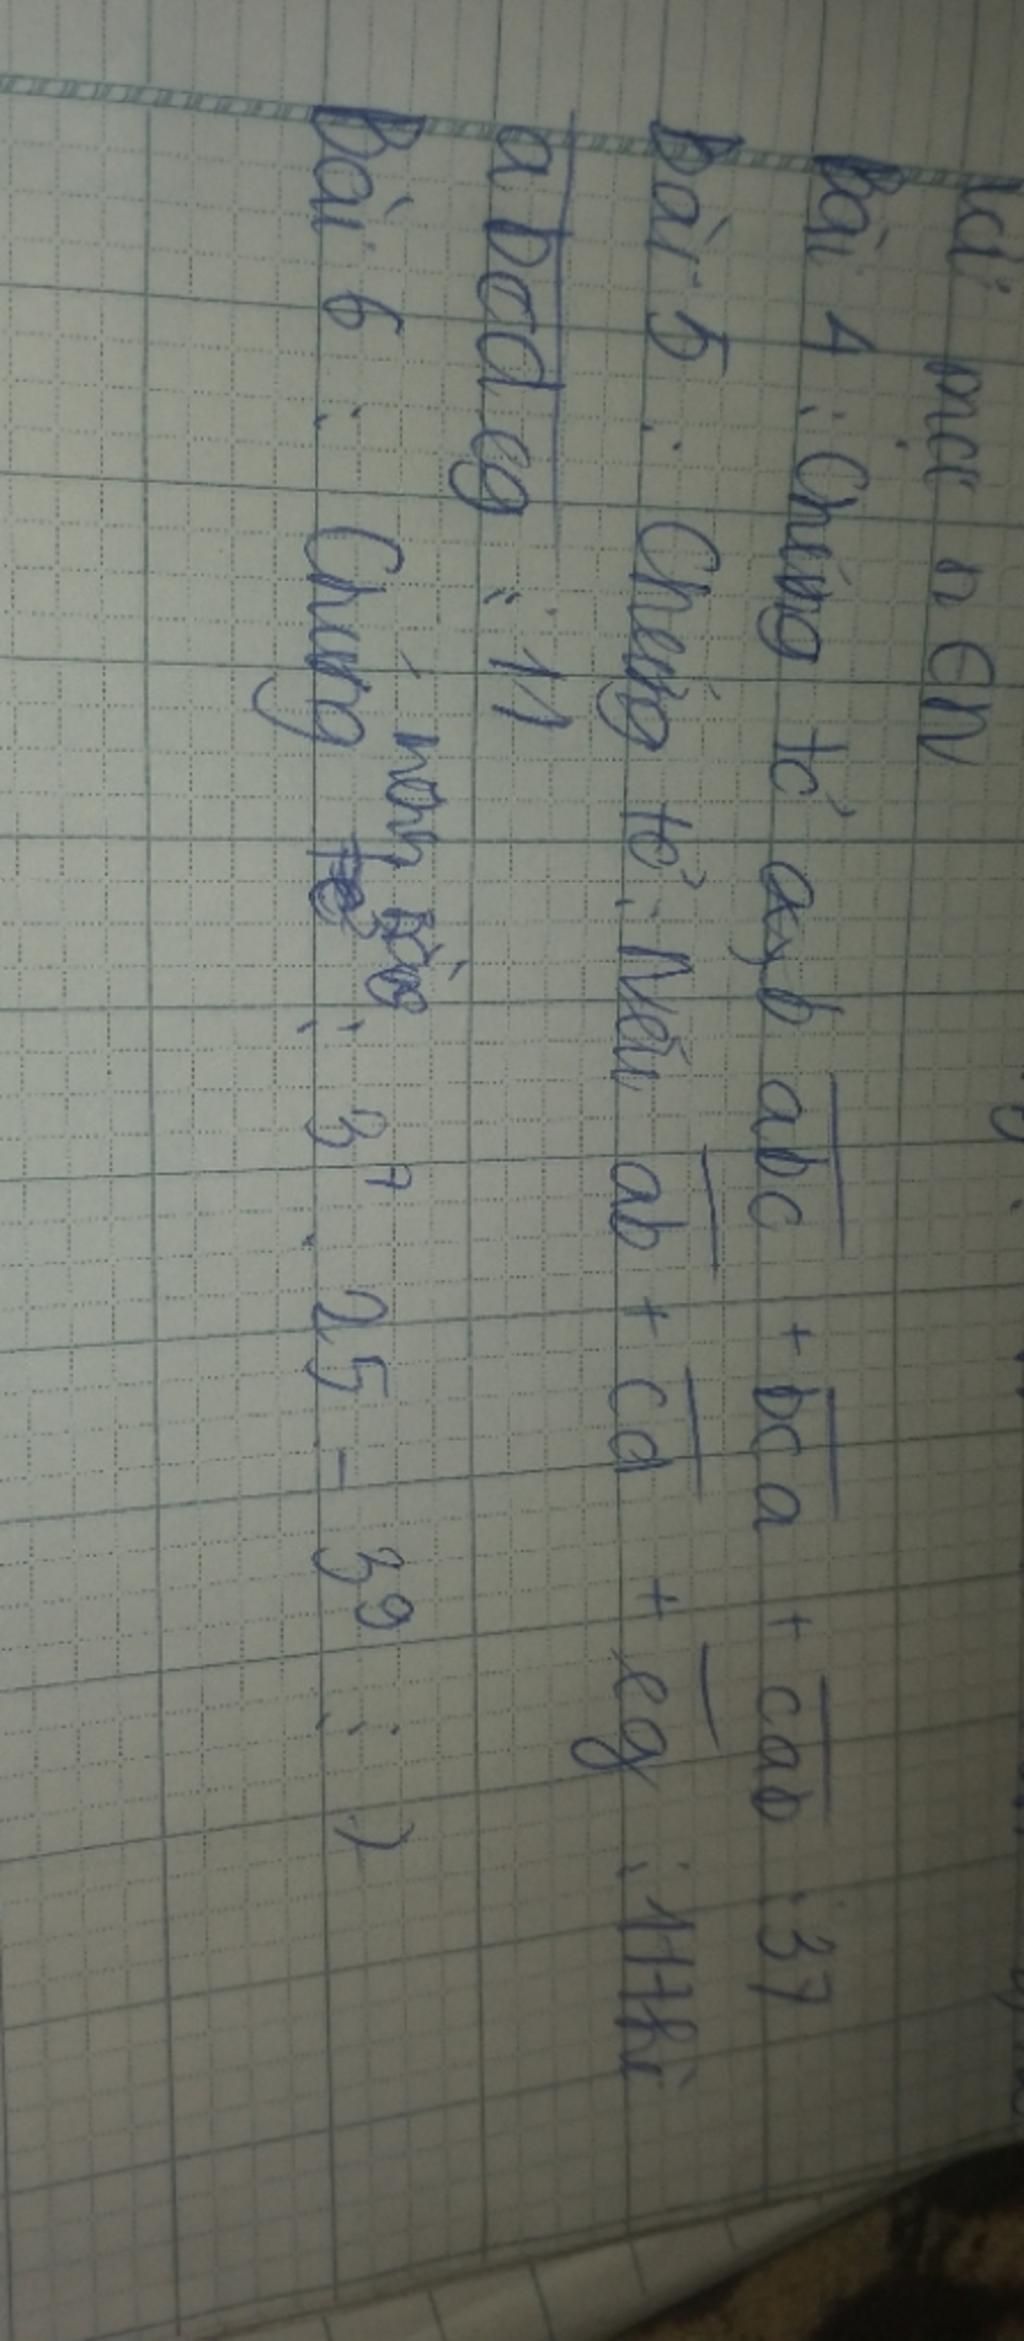 mọi n ∈ N
Bài 4 : Chứng tỏ a, b abc + bca + cab : 37
Bài 5 : Chứng tỏ : Nếu ab + cd + eg : 11 thì
abcdeg : 11
Bài 6 : Chứng : 3⁷ . 25 - 3⁹ :